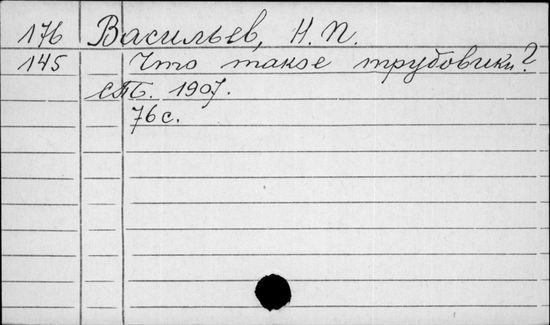 176 Васильев, Н. П.
145 Что такое трудовики?
СПБ. 1907.
76 с.